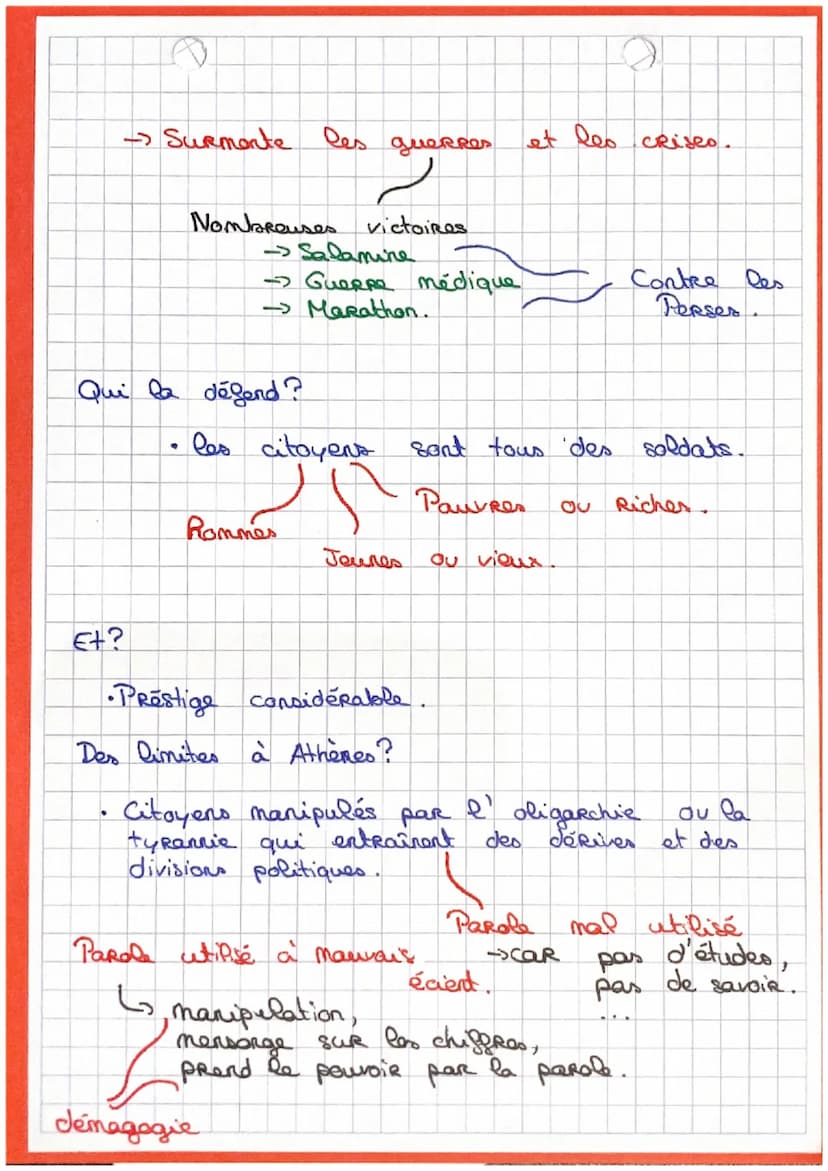 → Surmonte les guerres et les crises.
Nombreuses victoires
→ Salamine
→ Guerre médique
→ Marathon.
Contre les
Perses.
Qui la défend?
• les citoyens sont tous des soldats.
Pauvres ou Riches.
Hommes
Jeunes ou vieux.
Et?
• Préstige considérable.
Des limites à Athènes?
• Citoyens manipulés par l' oligarchie ou la
tyrannie qui entraînent des dérives et des
divisions politiques.
Parole mal utilisé
→ car pas d'études,
pas de savoir.
...
Parole utilisé à mauvais
écient.
↳ manipulation,
mensonge sur les chiffres,
prend le pouvoir par la parole.
démagogie